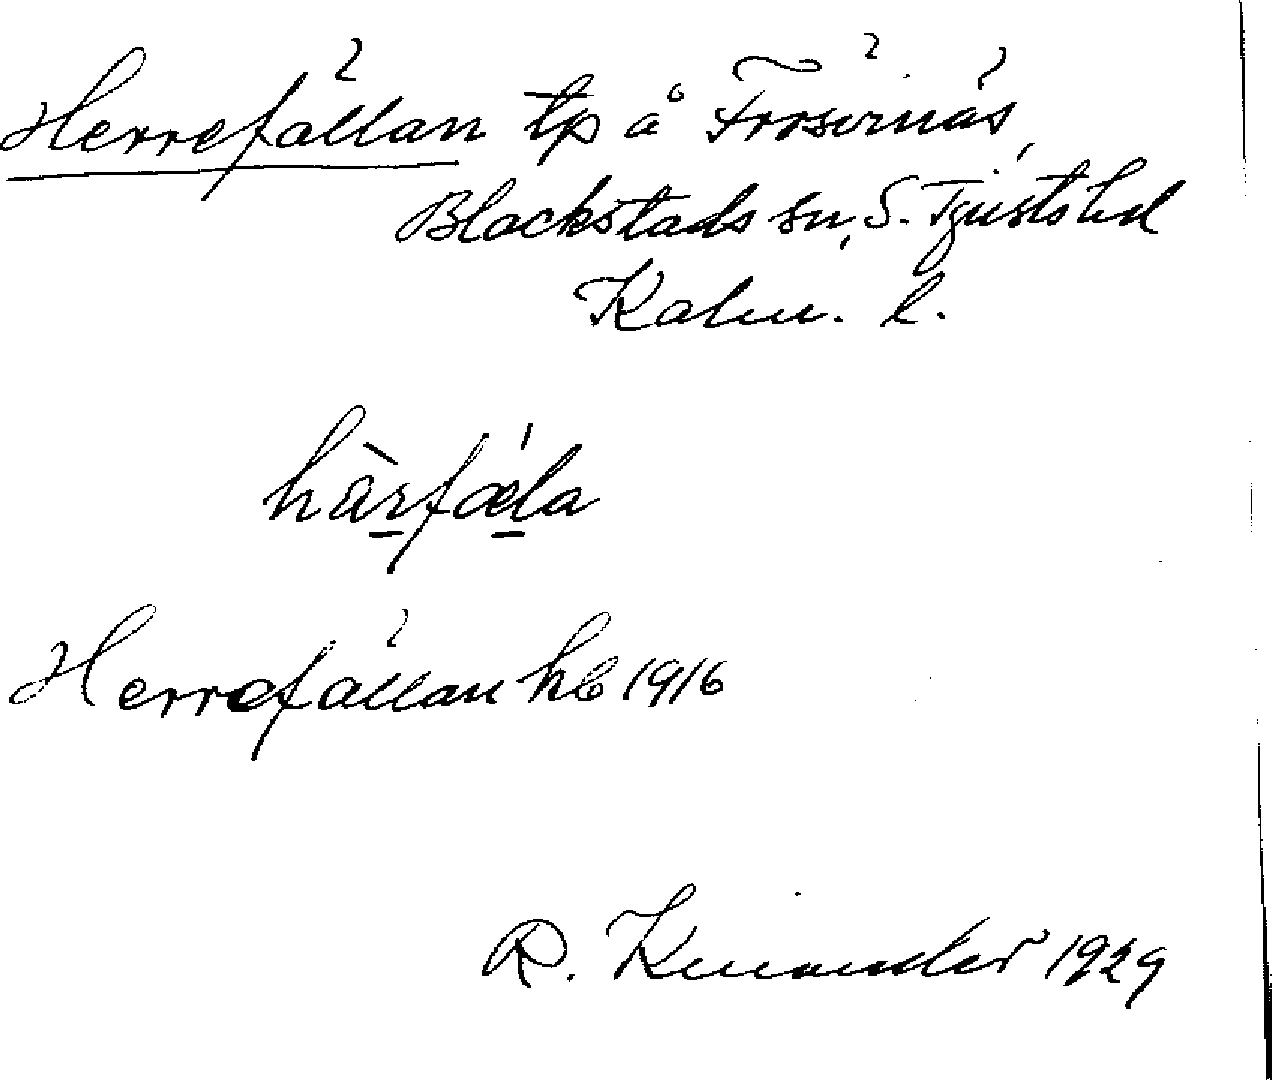 Herrefällan tp å Frösvinäs,
Blackstads sn, S. Tjusts hd
Kalm. l.
hàrfǽla
Herrefällan kb 1916
R. Kinander 1929